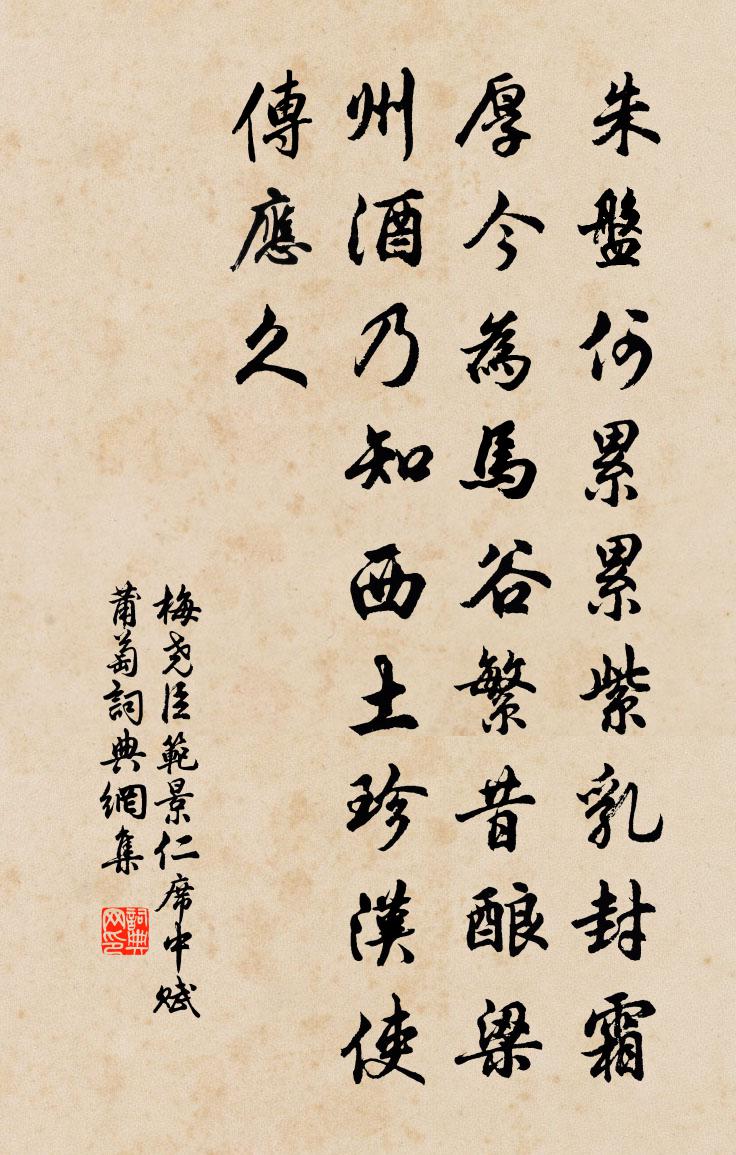 朱盤何累累紫乳封霜
厚今為馬谷繁昔酿梁
州酒乃知西土珍漢使
傳應久
梅尧臣範景仁席中賦
蒲萄詞典網集
詞典网印